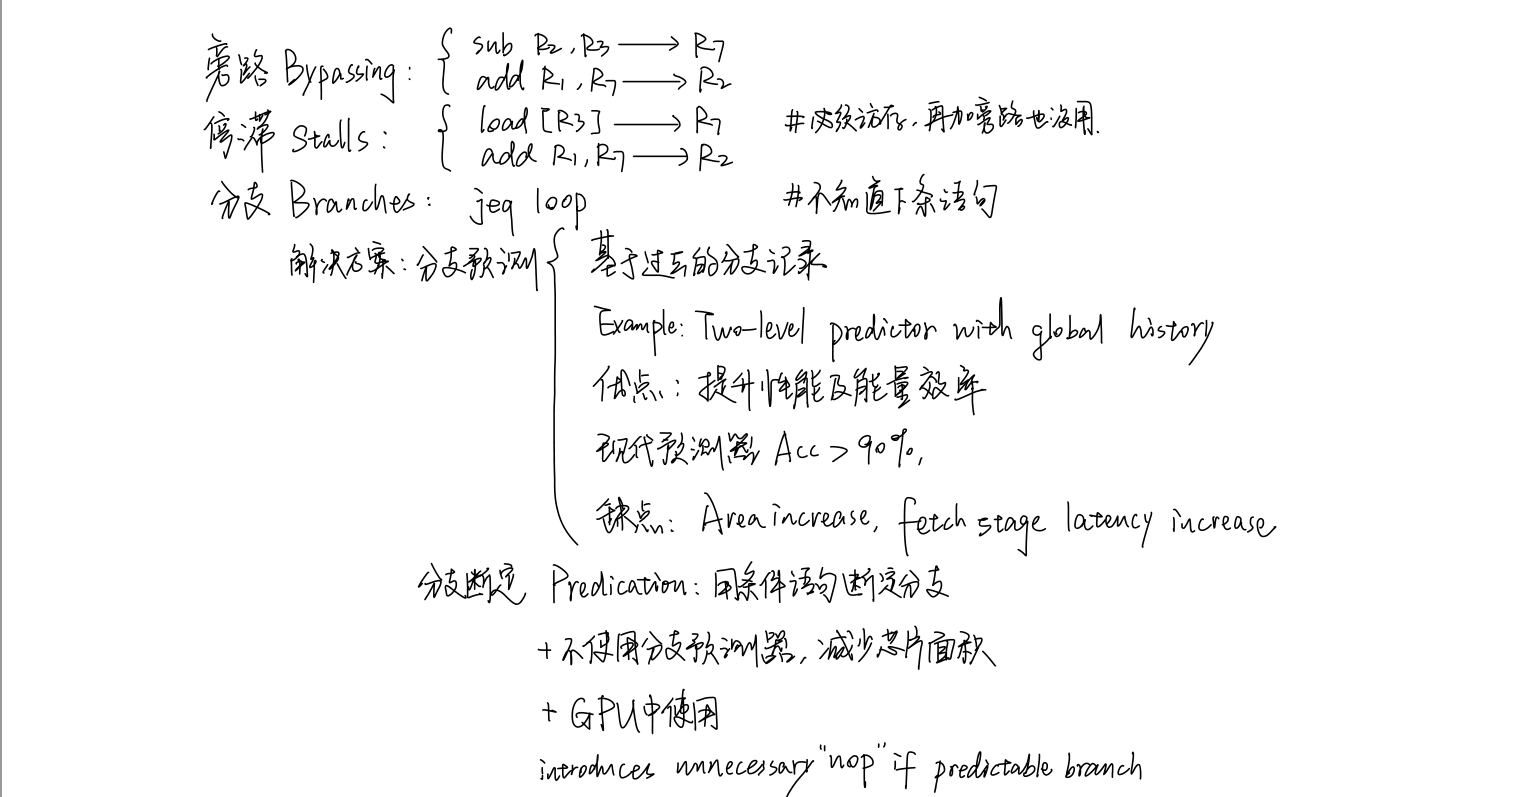 旁路 Bypassing: { sub R2, R3 ⟶ R7
add R1, R7 ⟶ R2
停滞 Stalls: { load [R3] ⟶ R7 #必须访存,再加旁路也没用.
add R1, R7 ⟶ R2
分支 Branches: jeq loop #不知道下条语句
解决方案:分支预测 { 基于过去的分支记录
Example: Two-level predictor with global history
优点:提升性能及能量效率
现代预测器 Acc > 90%,
缺点: Area increase, fetch stage latency increase
分支断定 Predication:用条件语句断定分支
+ 不使用分支预测器,减少芯片面积
+ GPU中使用
introduces unnecessary "nop" if predictable branch